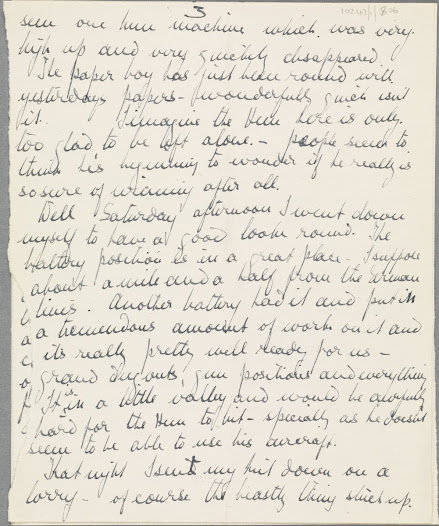 3
seen one hun machine which was very
high up and very quickly disappeared.
The paper boy has just been round with
yesterdays papers - wonderfully quick isn't
it. I imagine the Hun here is only
too glad to be left alone. - people seem to
think he's beginning to wonder if he really is
so sure of winning after all.
Well Saturday afternoon I went down
myself to have a good look round. The
battery position is in a great place - I suppose
about a mile and a half from the German
lines. Another battery had it and put in
a tremendous amount of work on it and
its really pretty well ready for us -
grand dug outs, gun positions and everything
It is in a little valley and would be awfully
hard for the Hun to hit - specially as he doesnt
seem to be able to use his aircraft.
That night I sent my kit down on a
lorry - of course the beastly thing stuck up.